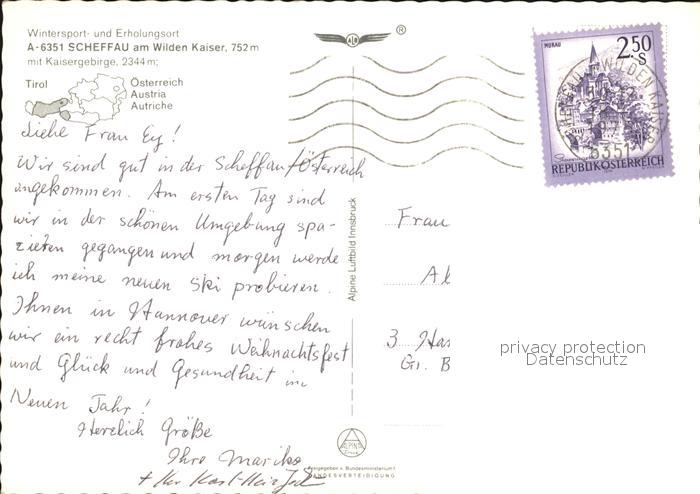 Wintersport- und Erholungsort
A-6351 SCHEFFAU am Wilden Kaiser, 752 m
mit Kaisergebirge, 2344 m;
Tirol
Österreich
Austria
Autriche
ALB
®
MURAU
2.50
S
REPUBLIK ÖSTERREICH
WILDEN KAISER
6351
Liebe Frau Ey!
Wir sind gut in der Scheffau/Österreich
angekommen. Am ersten Tag sind
wir in der schönen Umgebung spa-
zieren gegangen und morgen werde
ich meine neuen Ski probieren.
Ihnen in Hannover wünschen
wir ein recht frohes Weihnachtsfest
und Glück und Gesundheit im
Neuen Jahr!
Herzlich Grüße
Ihre Mariko
Alpine Luftbild Innsbruck
Frau
3 Han
Gr. B
privacy protection
Datenschutz
ALPINE
Freigegeben v. Bundesministerium f.
LANDESVERTEIDIGUNG